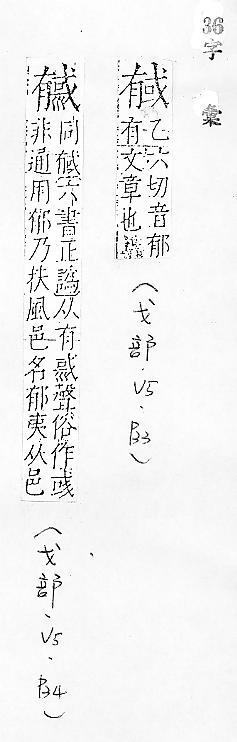 36字彙
戫
乙六切音郁
有文章也
（戈部·V5·P3）
同戫六書正譌从有聲俗作彧
非通用郁乃扶風邑名郁夷从邑
（戈部·V5·P4）